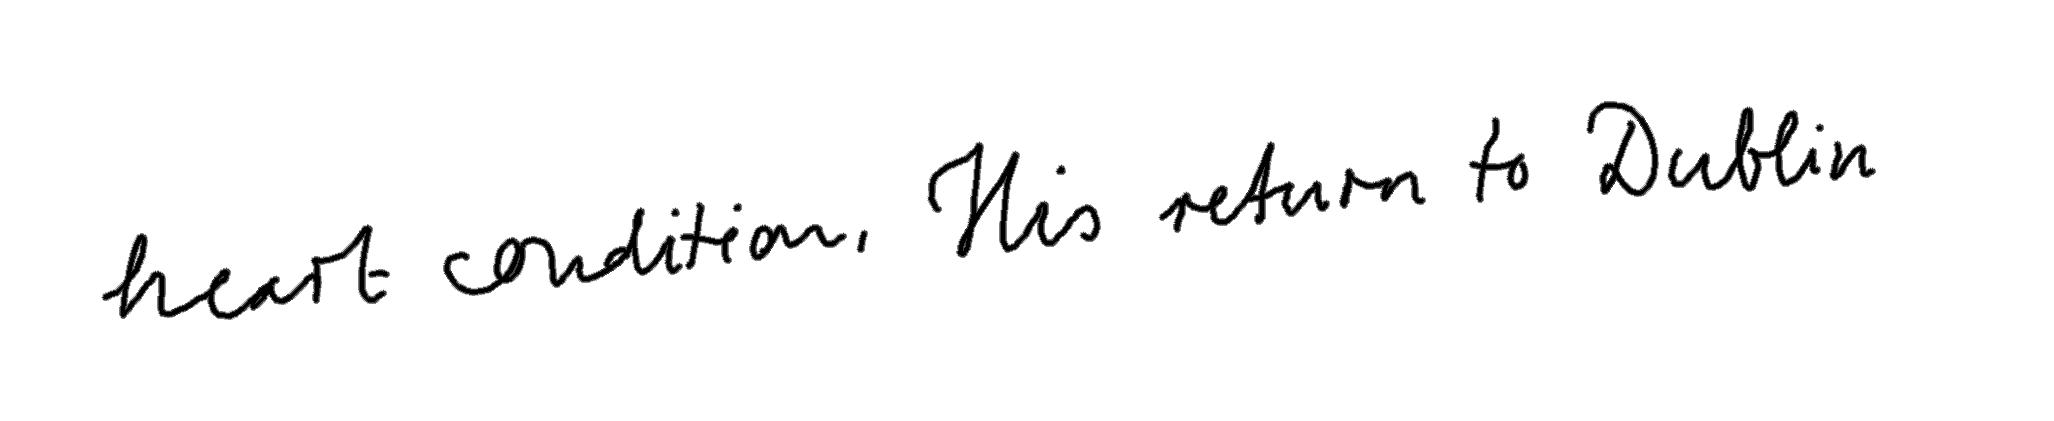 heart condition. His return to Dublin